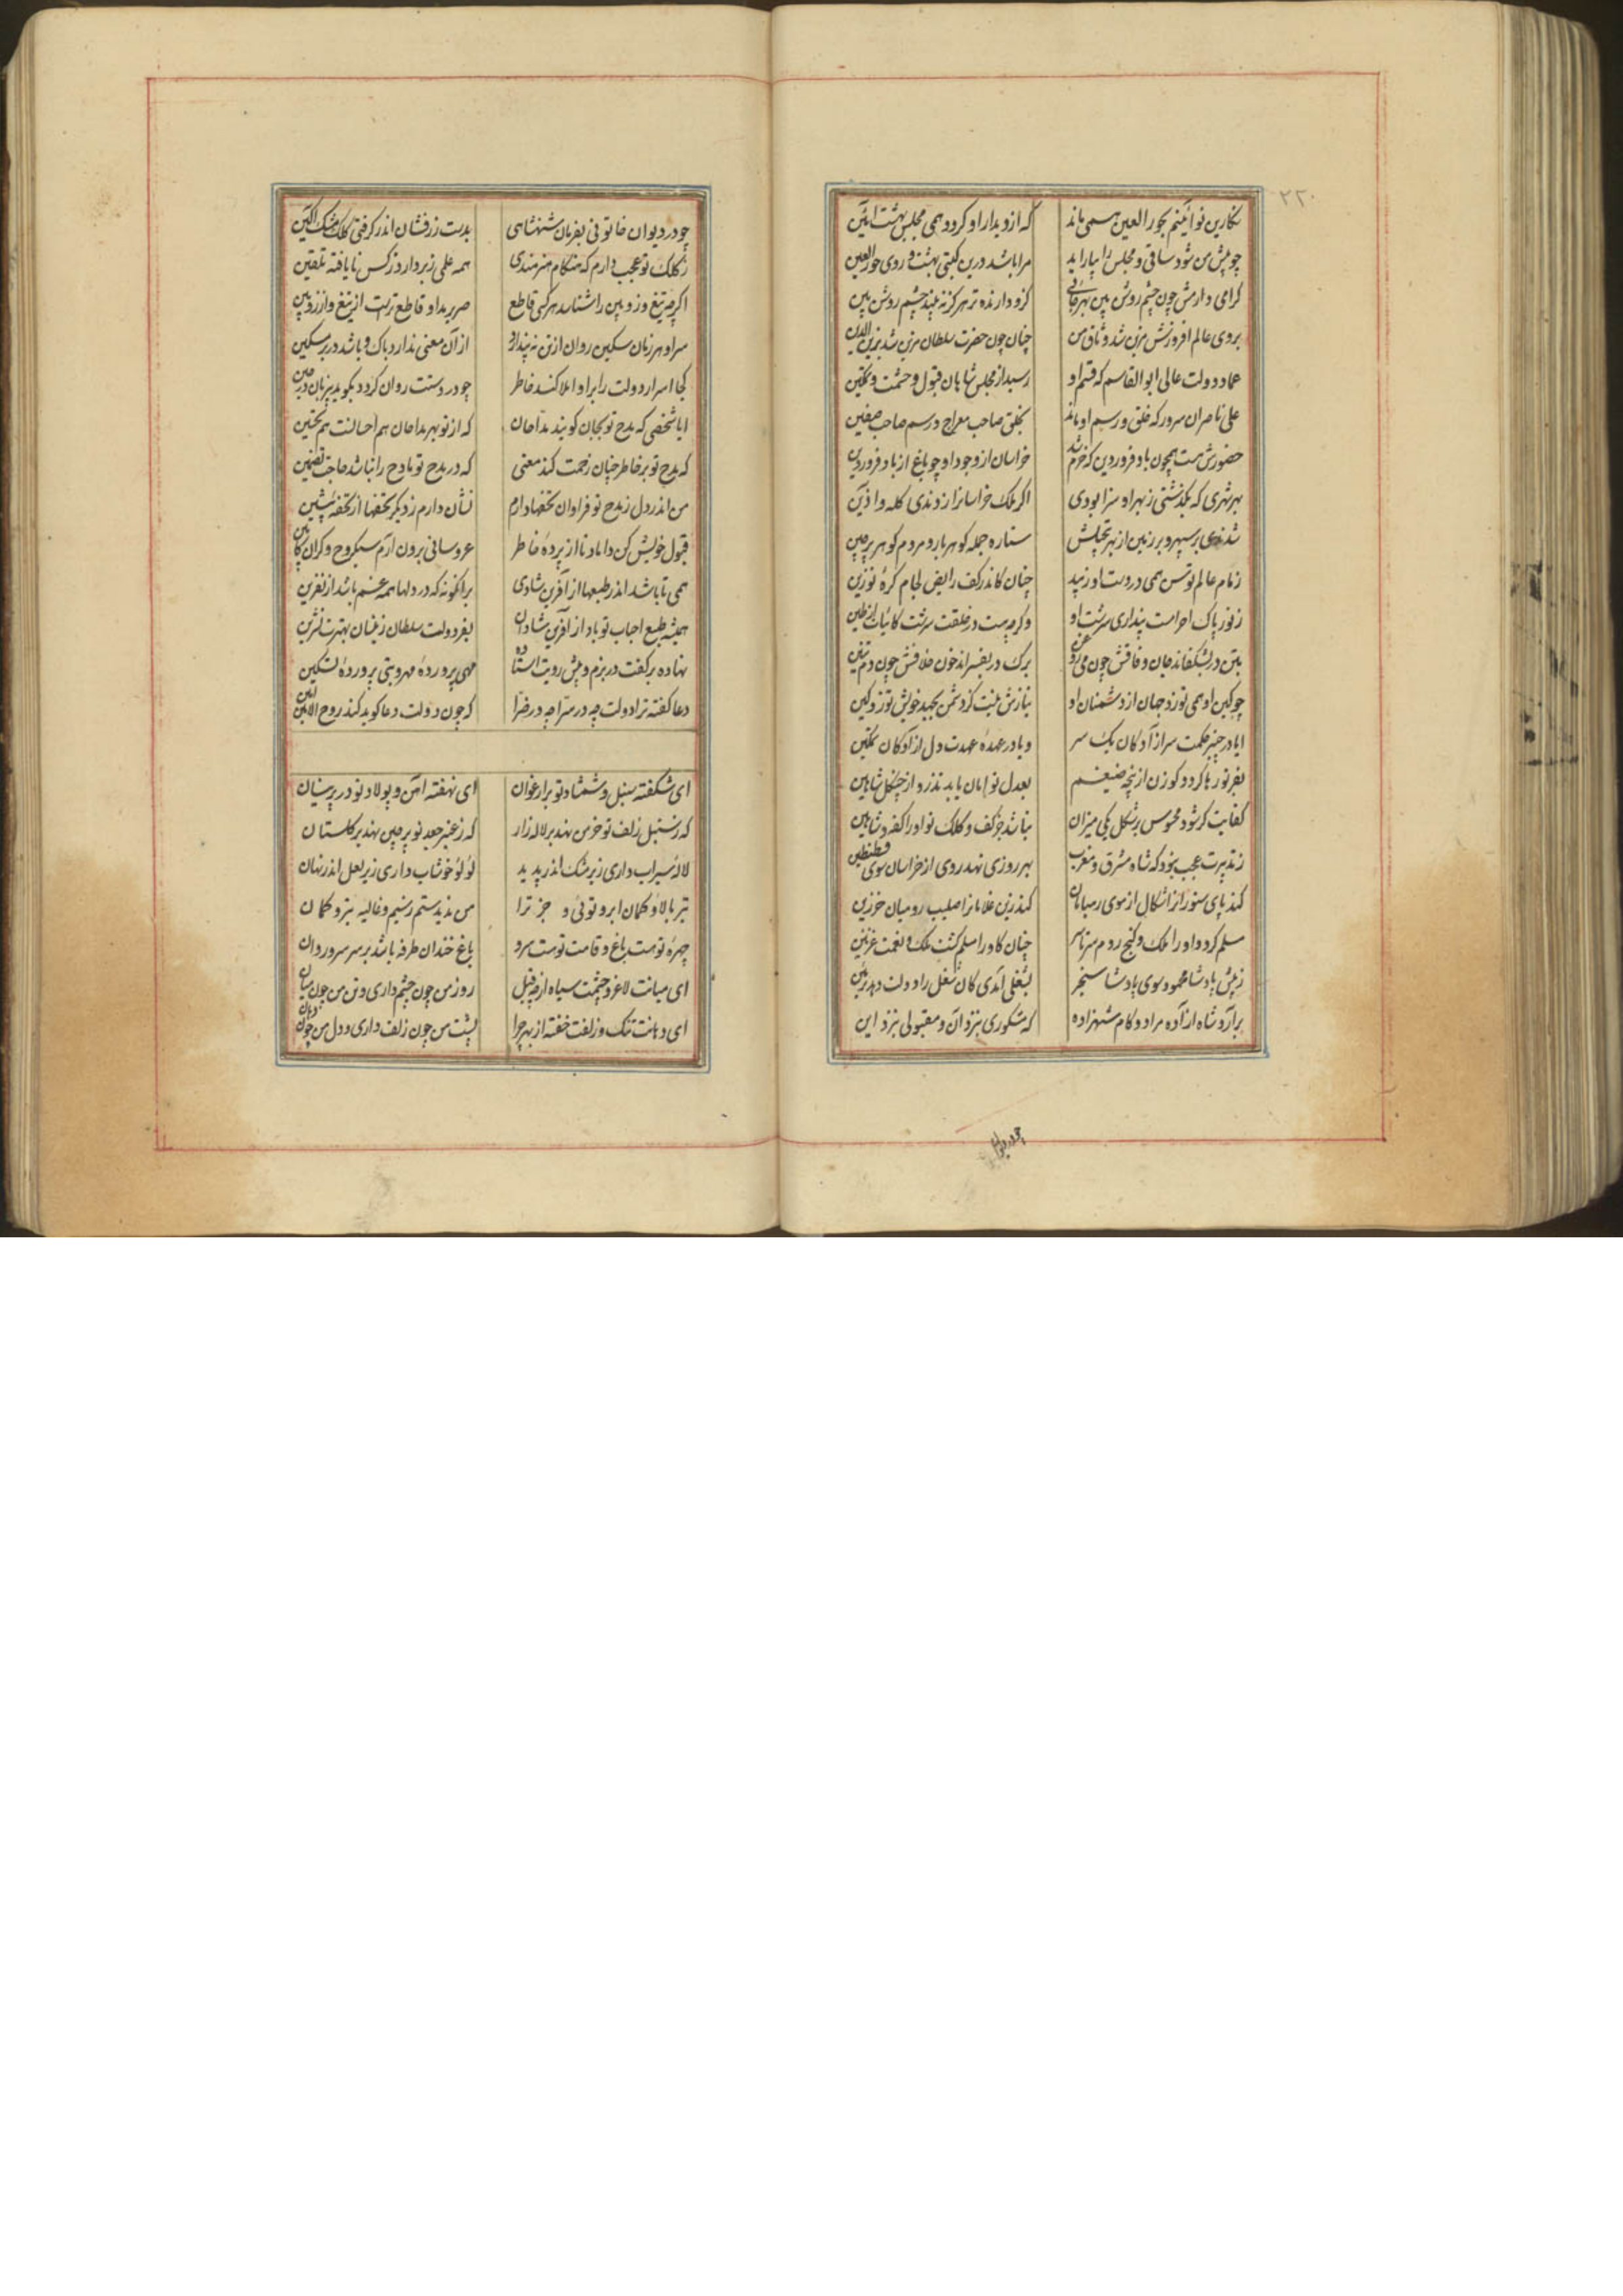 ۲۲۰
نکارین نوآئینم بحور العین همی ماند که از دیدار او کردد همی مجلس بهشت آئین
چو پیش من شود ساقی و مجلس را بیاراید مرا باشد درین کیتی بهشت و روی حور العین
کرامی دارمش چون چشم روشن بین کزو دارنده تر هرکز نه بیند چشم روشن بین
بروی عالم افروزش مزین شد وثاق من چنان چون حضرت سلطان مزین شد بزین الدین
عماد دولت عالی ابوالقاسم که قسم او رسید از مجلس شاهان قبول و حشمت و تمکین
علی ناصر ان سرور که خلق و رسم او ماند بخلق صاحب معراج و رسم صاحب صفین
حضورش هست همچون باد فروردین که خرم شد خراسان از وجود او چو باغ از باد فروردین
بهر شهری که بکذشتی ز بهر او سزا بودی اکر ملک خراسانرا زدندی کله و آذین
شدندی بر سپهر و بر زمین از بهر تجلیش ستاره جمله کوهر بار و مردم کوهر برچین
زمام عالم توسن همی در دست او زیبد چنان کاندر کف رایض لجام کره نوزین
ز نور پاک احرامست پنداری سرشت او وکرچه هست در خلقت سرشت کائنات از طین
بتن در بشکفاند جان وفاقش چون می برک در بفسراند خون خلافش چون دم تنین
چو کین او همی توزد جهان از دشمنان او نیازش نیست کز دشمن بجهد خویش توزد کین
ایا در چنبر حکمت سر آزادکان یک سر و یا در عهده عهدت دل آزادکان تمکین
بفر تو رها کردد کوزن از پنجه ضیغم بعدل تو امان یابد تذرو از چنکل شاهین
کفایت کر شود محسوس بر شکل یکی میزان نباشد جز کف و کلک تو او را کفه و شاهین
ز تدبیرت عجب نبود که شاه مشرق و مغرب بهر روزی نهد روی از خراسان سوی قسطنطین
کند پای ستور انرا شکال از موی رهبانان کند زین غلامانرا صلیب رومیان خرزین
مسلم کردد او را ملک و کنج روم سرتاسر چنان کاو را مسلم کشت ملک و نعمت غزنین
ز پیش پادشا محمود سوی پادشا سنجر بشغلی آمدی کان شغل را دولت دهد تزیین
برآرد شاه از آنده مراد و کام شهزاده که مشکوری بنزد آن و مقبولی بنزد این
چو در دیوان
چو در دیوان خاتونی بفرمان شهنشاهی بدست زرفشان اندر کرفتی کلک مشک آکین
ز کلک تو عجب دارم که هنکام هنرمندی همه علمی زبر دارد ز کس نایافته تلقین
اکرچه تیغ و زوبین را شناسد هر کسی قاطع صریر او قاطع ترست از تیغ و از زوبین
سر او هر زمان سکین روان از تن از آن معنی ندارد باک و باشد در بر سکین
کجا اسرار دولت را برا و املا کند خاطر چو در دستت روان کردد بکوید بی زبان در حین
ایا شخصی که مدح تو بجان کویند مداحان که از تو بهر مداحان هم احسانست هم تحسین
که مدح تو بر خاطر چنان زحمت کند معنی که در مدح تو مادح را نباشد حاجت تضمین
من اندر دل ز مدح تو فراوان تحفها دارم نشان دارم ز دیکر تحفها از تحفه پیشین
قبول خویش کن داماد تا از پرده خاطر عروسانی برون آرم سبکروح و کران کابین
همی تا باشد اندر طبعها از آفرین شادی برانکونه که در دلها همه غم باشد از نفرین
همیشه طبع احباب تو باد از آفرین شادان بفر دولت سلطان
نهاده بر کفت در بزم و پیش رویت استاده مهی پرورده مهر و بتی پرورده تسکین
دعا کفته ترا دولت چه در سرا چه در ضرا که چون دولت دعا کوید کند روح الامین آمین
ای شکفته سنبل و شمشاد تو بر ارغوان ای نهفته آهن و پولاد تو در پرنیان
که ز سنبل زلف تو خرمن نهد بر لاله زار که ز عنبر جعد تو پرچین نهد بر کلستان
لاله سیراب داری زیر مشک اندر پدید لؤلؤ خوشاب داری زیر لعل اندر نهان
تیر بالا و کمان ابرو توئی و جز ترا من ندیدستم ز سیم و غالیه تیر و کمان
چهره تو هست باغ و قامت توست سرو باغ خندان طرفه باشد بر سر سرو روان
ای میانت لاغر و چشمت سیاه از چه قبل روز من چون چشم داری و تن من چون میان
ای دهانت تنک و زلفت خفته از بهر چرا پشت من چون زلف داری و دل من چون دهان